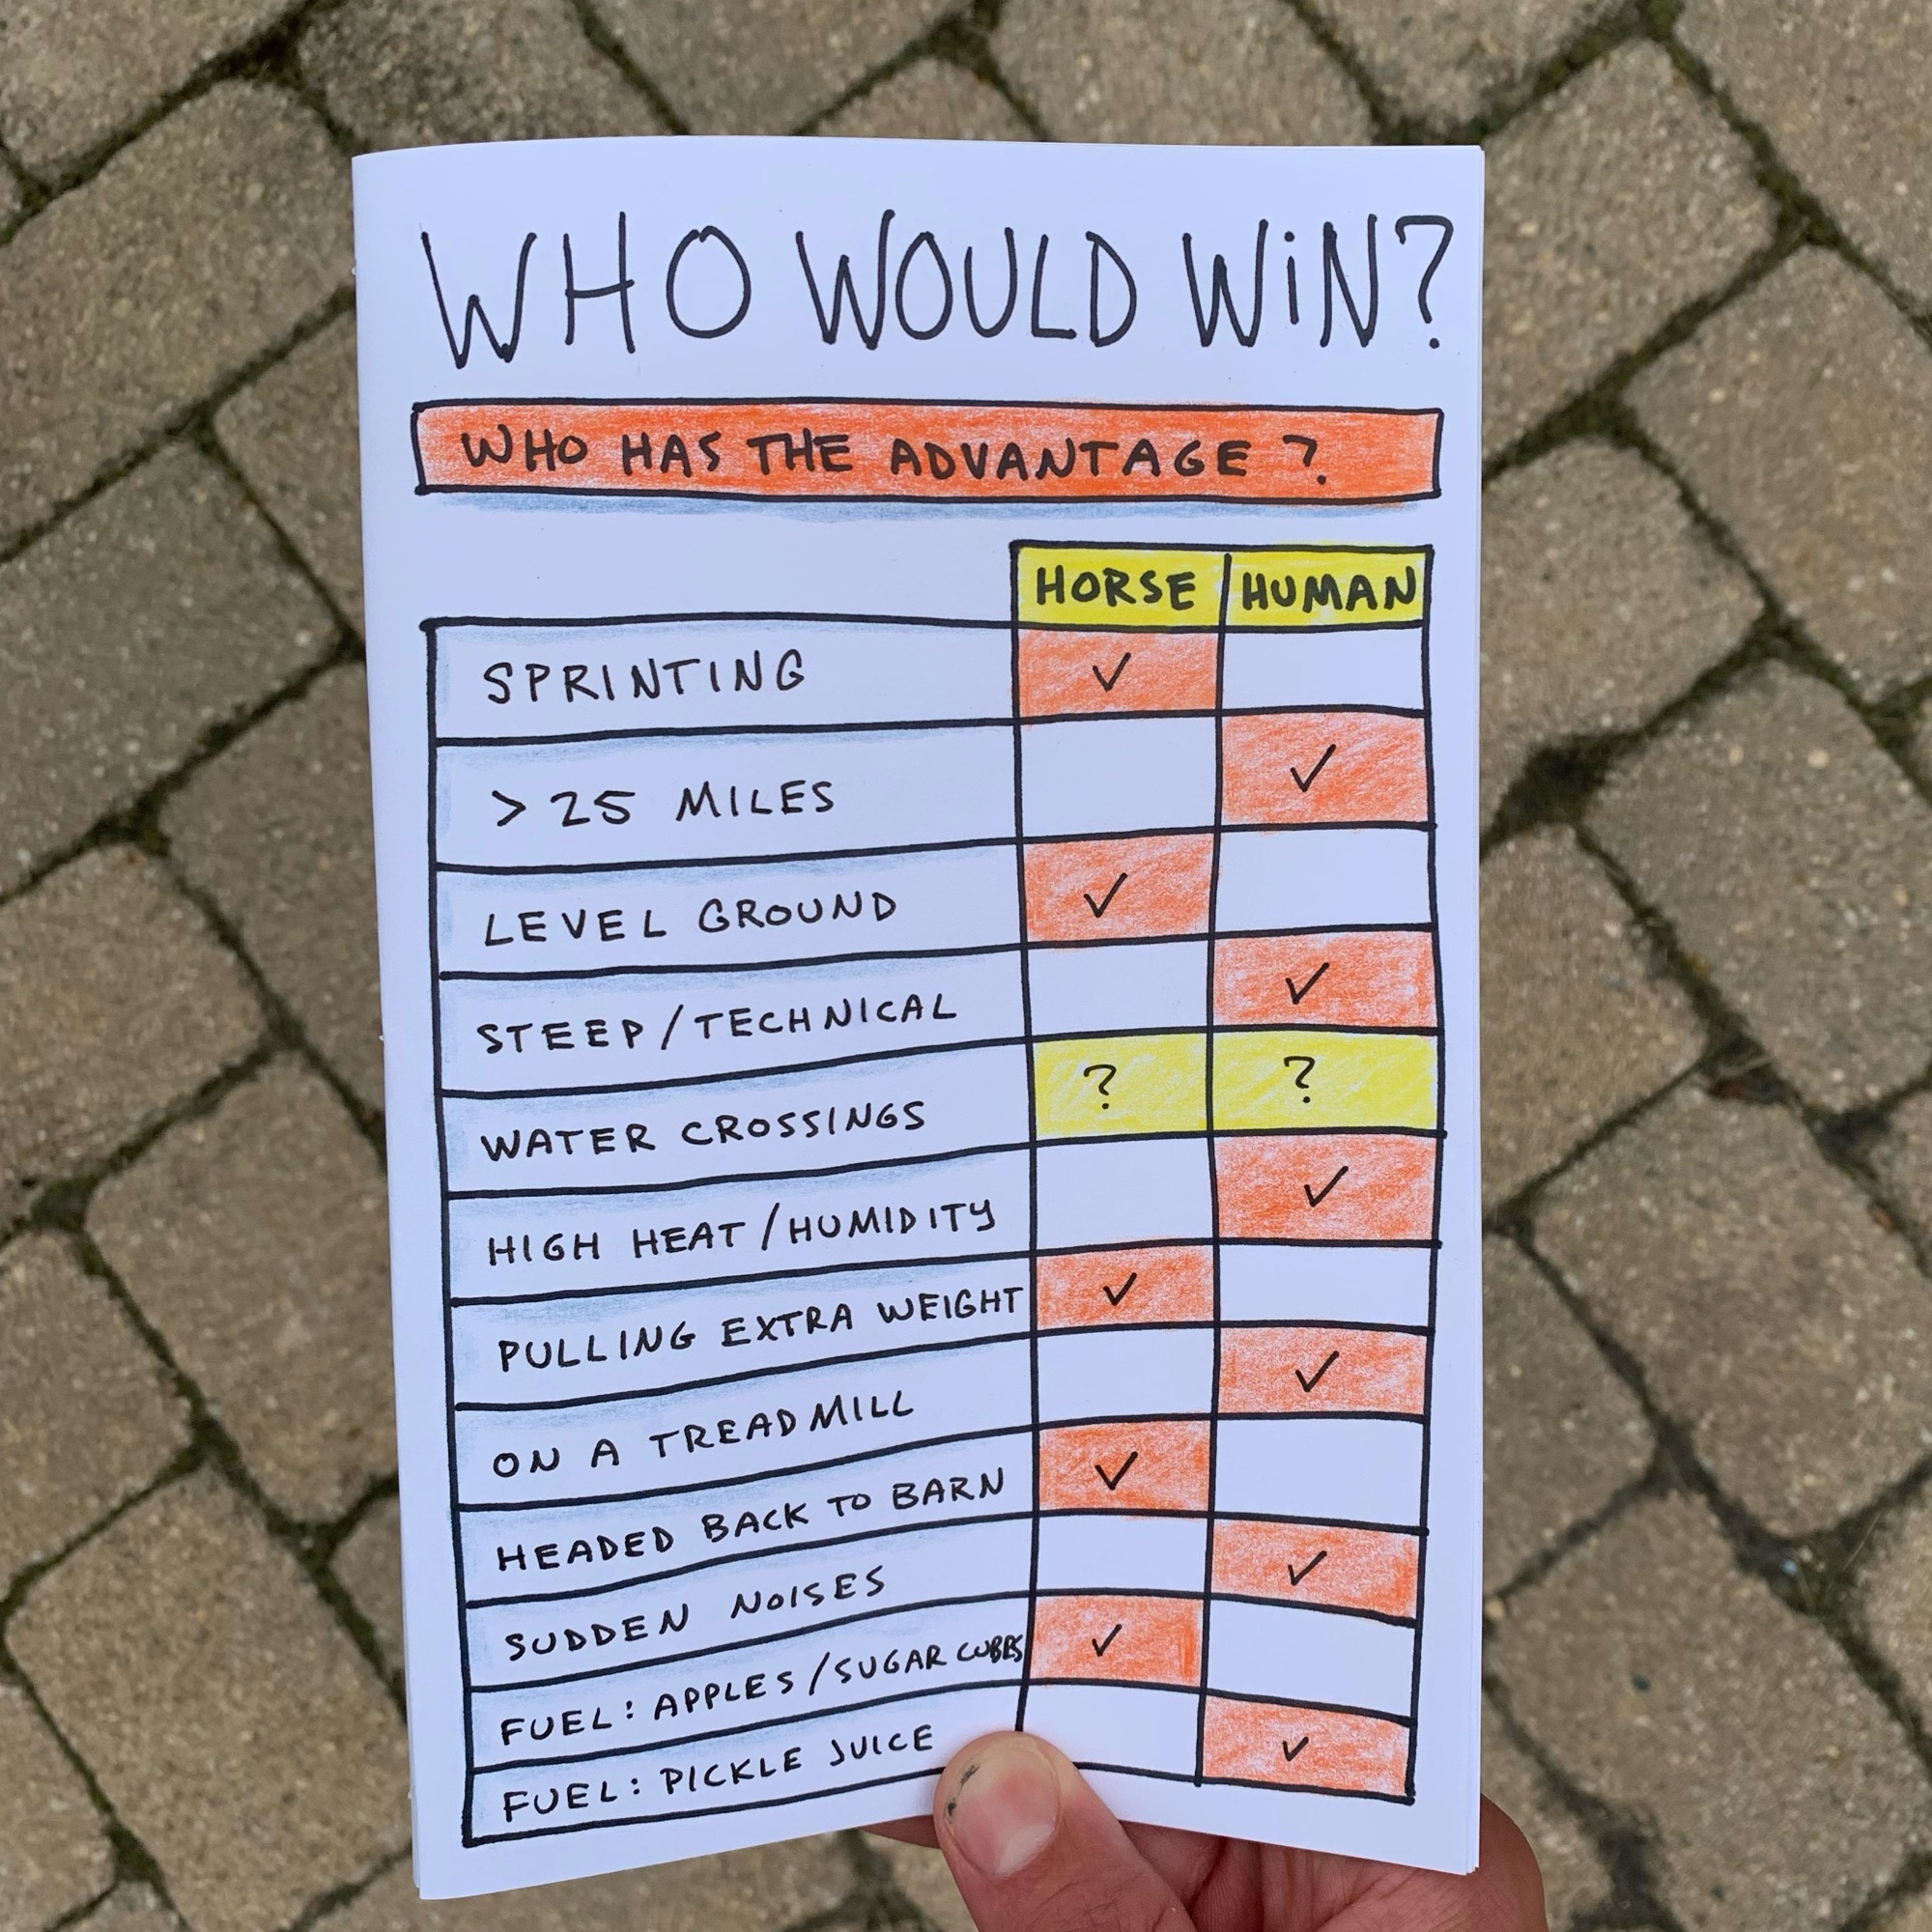 WHO WOULD WiN?
WHO HAS THE ADVANTAGE?
HORSE HUMAN
SPRINTING ✓
> 25 MILES ✓
LEVEL GROUND ✓
STEEP/TECHNICAL ✓
WATER CROSSINGS ? ?
HIGH HEAT/HUMIDITY ✓
PULLING EXTRA WEIGHT ✓
ON A TREADMILL ✓
HEADED BACK TO BARN ✓
SUDDEN NOISES ✓
FUEL: APPLES/SUGAR CUBES ✓
FUEL: PICKLE JUICE ✓